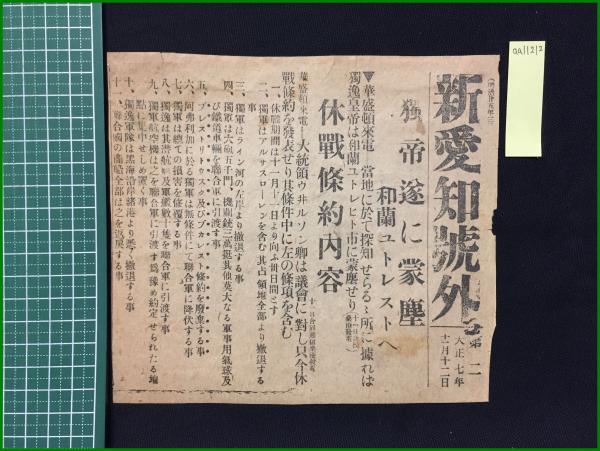 新愛知號外
第二
大正七年
十一月十二日
獨帝遂に蒙塵
和蘭ユトレストへ
▼華盛頓來電 當地に於て探知せらるゝ所に據れば
獨逸皇帝は和蘭ユトレヒト市に蒙塵せり
休戰條約內容
華盛頓來電=大統領ウ井ルソン卿は議會に對し只今休
戰條約を發表せり其條件中に左の條項を含む
一、休戰期間は十一月十一日より向ふ卅日間とす
二、獨軍はアルサスローレンを含む其占領地全部より撤退する
事
三、獨軍はライン河の左岸より撤退する事
四、獨軍は大砲五千門、機關銃三萬挺其他莫大なる軍事用氣球及
び鐵道車輛を聯合軍に引渡す事
五、ブレストリトウスク及びブカレスト條約を廢棄する事
六、阿弗利加に於る獨軍は無條件にて聯合軍に降伏する事
七、獨軍は總ての損害を修復する事
八、獨逸は其潛航艇及軍艦數十隻を聯合軍に引渡す事
九、獨軍航空機は之を聯合軍に引渡す爲豫め約定せられたる地
點に集中せしめ置く事
十、獨逸軍隊は黑海沿岸諸港より悉く撤退する事
十一、聯合國の商船全部は之を返戾する事